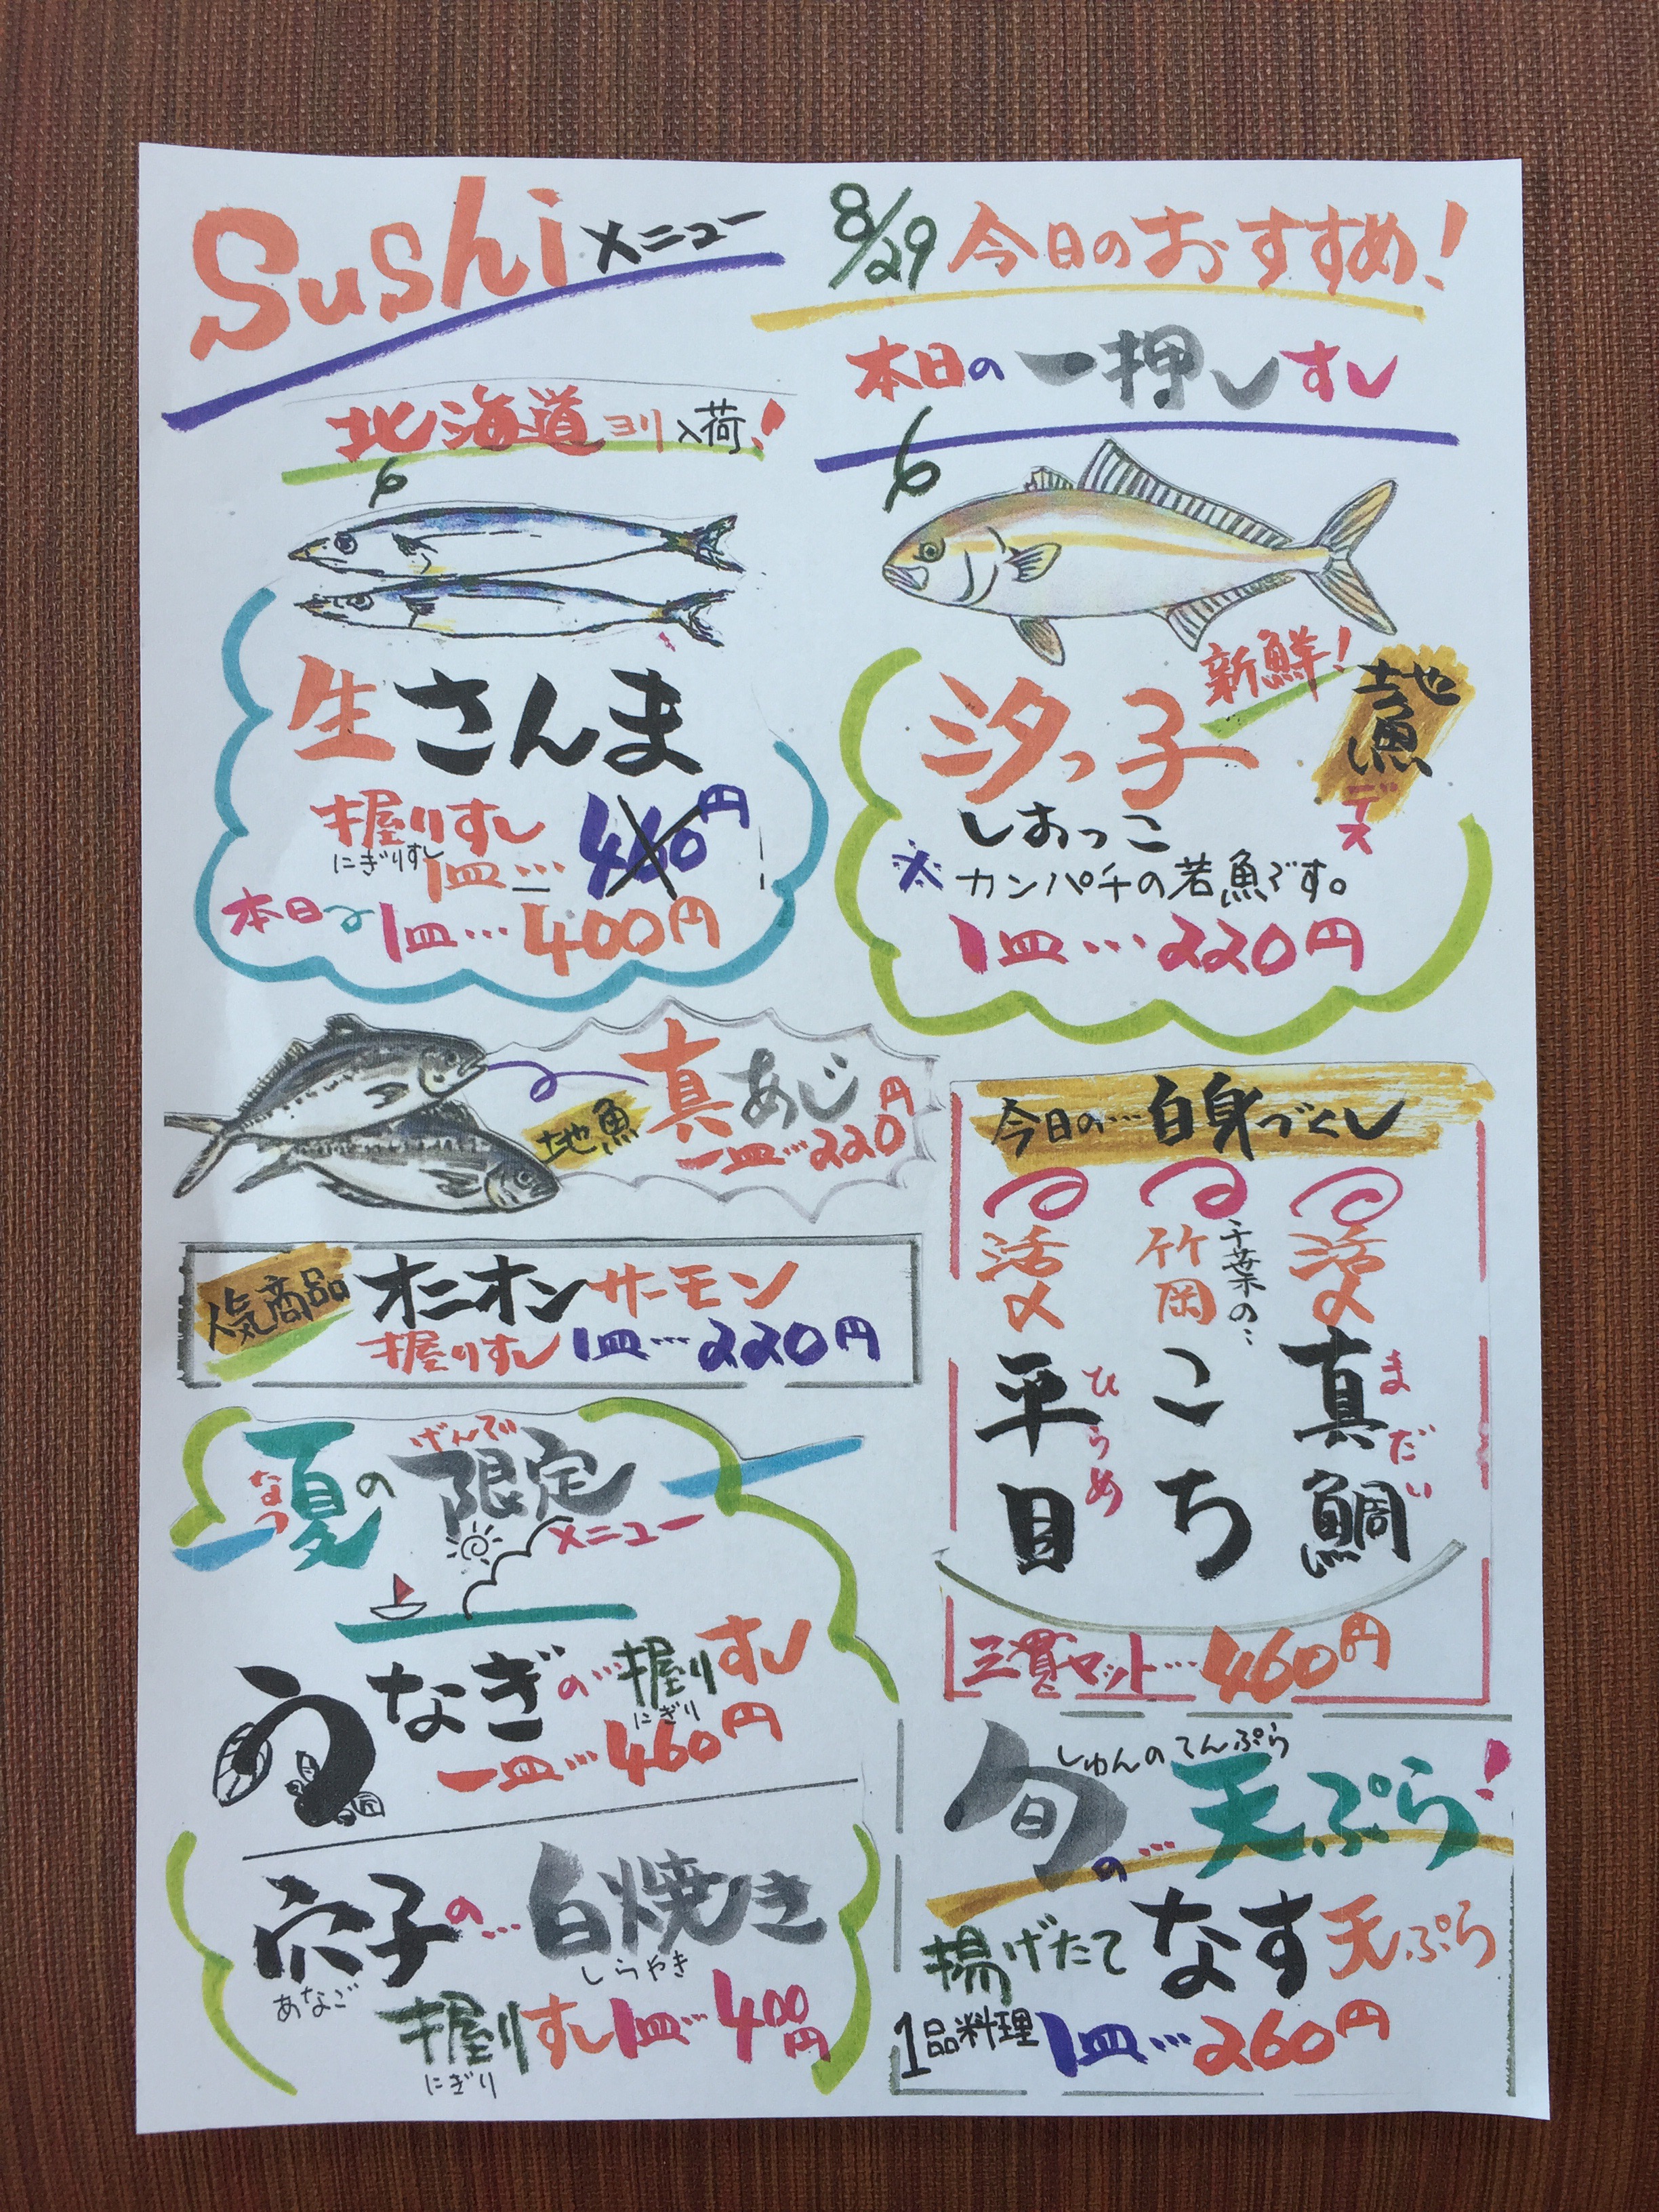 Sushi メニュー
8/29 今日のおすすめ!
北海道ヨリ入荷!
生さんま
握りすし
にぎりすし
1皿… 460円
本日は 1皿…400円
本日の一押しすし
新鮮!
地魚デス
汐っ子
しおっこ
※カンパチの若魚です。
1皿…220円
地魚
真あじ
一皿…220円
人気商品
オニオンサーモン
握りすし 1皿…220円
今日の…白身づくし
活〆
平目
ひらめ
千葉の…
竹岡
こち
活〆
真鯛
まだい
三貫セット…460円
なつ
げんてい
夏の限定
メニュー
うなぎの…握りすし
にぎり
一皿…460円
穴子の…白焼き
あなご
しらやき
握りすし1皿…400円
にぎり
しゅんのてんぷら
旬の…天ぷら!
揚げたて なす天ぷら
1品料理 1皿…260円